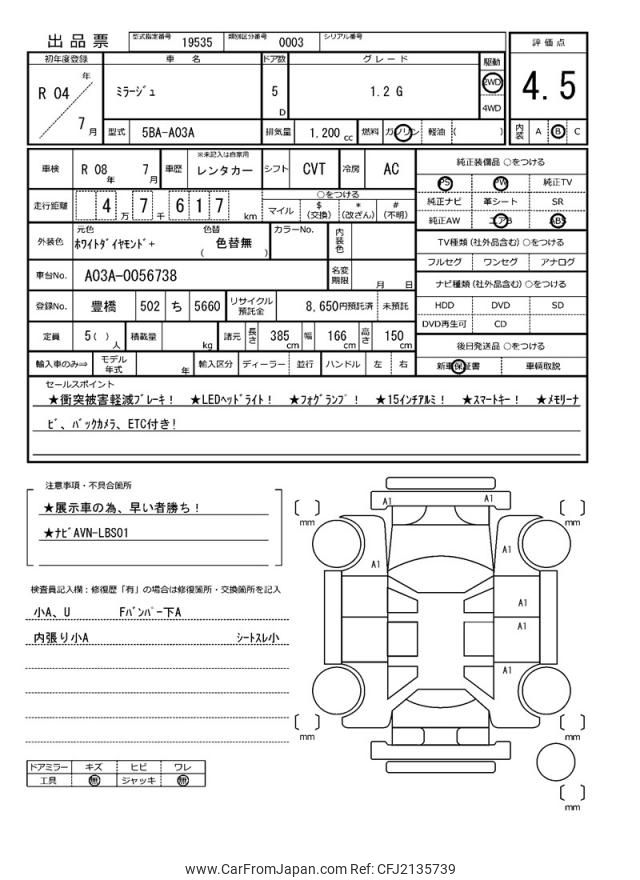 出品票 型式指定番号 19535 類別区分番号 0003 シリアル番号
初年度登録 車 名 ドア数 グレード 駆動 評価点
R 04 年 7 月 ミラージュ 5 D 1.2 G 2WD 4WD 4.5
型式 5BA-A03A 排気量 1.200 cc 燃料 ガソリン 軽油 ( ) 内装 A B C
車検 R 08 年 7 月 車歴 ※未記入は自家用 レンタカー シフト CVT 冷房 AC
走行距離 4 万 7 千 6 1 7 km ○をつける
マイル $ (交換) * (改ざん) # (不明)
外装色 元色 ホワイトダイヤモンド+ 色替 色替無 ( ) カラーNo. 内装色
車台No. A03A-0056738 名変期限 月 日
登録No. 豊橋 502 ち 5660 リサイクル預託金 8,650円預託済 未預託
定員 5( ) 人 積載量 kg 諸元 長さ 385 cm 幅 166 cm 高さ 150 cm
輸入車のみ⇒ モデル年式 年 輸入区分 ディーラー 並行 ハンドル 左 右
純正装備品 ○をつける
PS PW 純正TV
純正ナビ 革シート SR
純正AW エアB ABS
TV種類 (社外品含む) ○をつける
フルセグ ワンセグ アナログ
ナビ種類 (社外品含む) ○をつける
HDD DVD SD
DVD再生可 CD
後日発送品 ○をつける
新車保証書 車輌取説
セールスポイント
★衝突被害軽減ブレーキ! ★LEDヘッドライト! ★フォグランプ! ★15インチアルミ! ★スマートキー! ★メモリーナ
ビ、バックカメラ、ETC付き!
注意事項・不具合箇所
★展示車の為、早い者勝ち!
★ナビAVN-LBS01
検査員記入欄:修復歴「有」の場合は修復箇所・交換箇所を記入
小A、U Fバンパー下A
内張り小A シートスレ小
ドアミラー キズ ヒビ ワレ
工具 無 ジャッキ 無
A1 A1
mm mm
A1 A1
A1
A1
mm mm
mm
www.CarFromJapan.com Ref: CFJ2135739